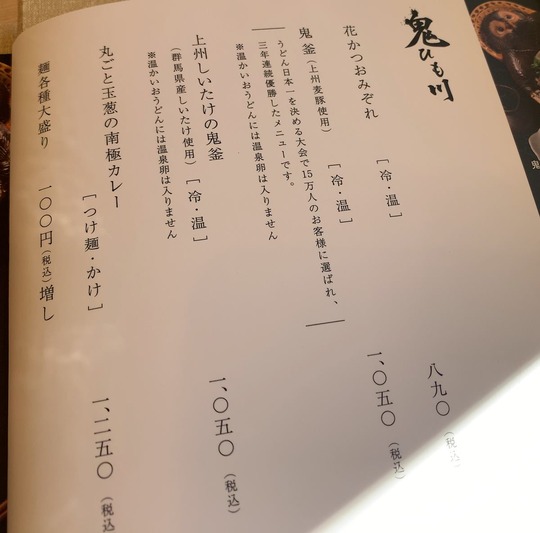 鬼ひも川
花かつおみぞれ [冷・温] 八九〇(税込)
鬼釜(上州麦豚使用) [冷・温] 一、〇五〇(税込)
うどん日本一を決める大会で15万人のお客様に選ばれ、
三年連続優勝したメニューです。
※温かいおうどんには温泉卵は入りません
上州しいたけの鬼釜
(群馬県産しいたけ使用) [冷・温] 一、〇五〇(税込)
※温かいおうどんには温泉卵は入りません
丸ごと玉葱の南極カレー
[つけ麺・かけ] 一、二五〇(税込
麺各種大盛り 一〇〇円(税込)増し
鬼